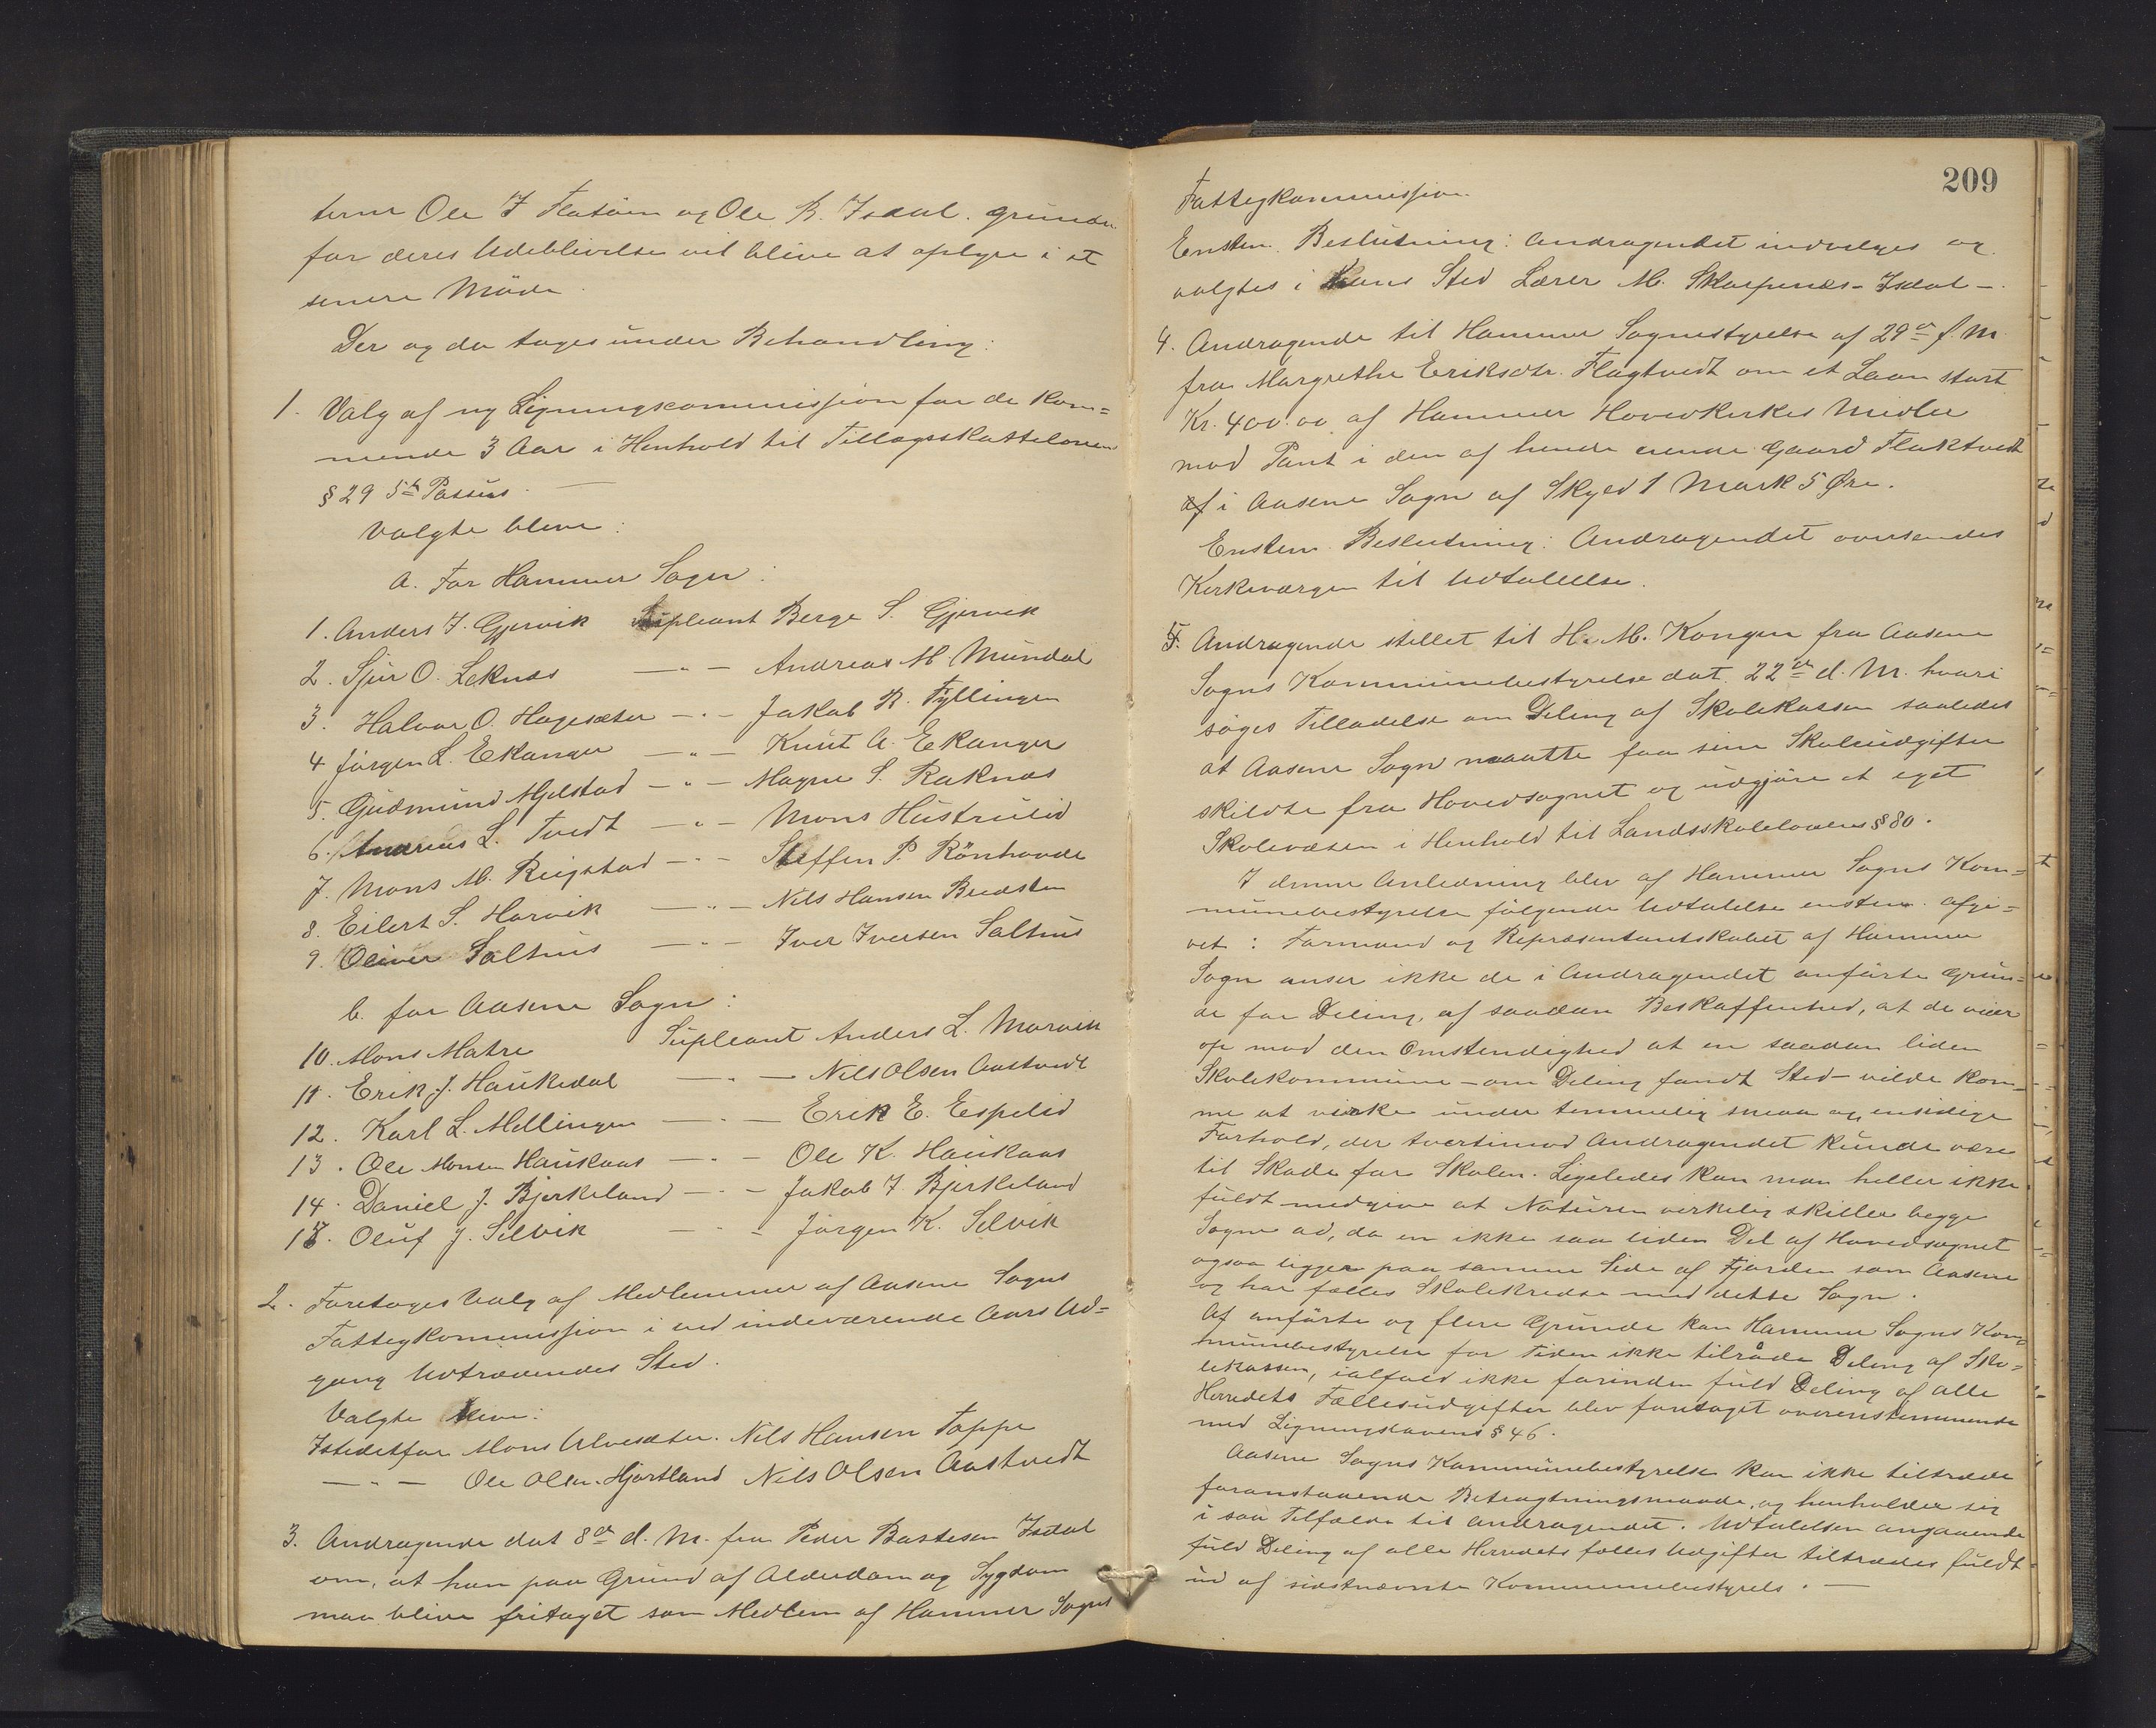 terne Ole I Flatöen og Ole B. Isdal. Grunden
for deres Udeblivelse vil blive at oplyse i et
senere Möde.
Der og da toges under Behandling:
1. Valg af ny Ligningscommission for de kom=
mende 3 Aar i Henhold til Tillægsskatteloven
§ 29 5te Passus. —
Valgte bleve:
a. For Hammer Sogn:
1. Anders J. Gjervik Supleant Berge S. Gjervik
2. Sjur O. Leknes —"— Andreas M. Mundal
3. Halvor O. Hagesæter —"— Jakob R. Fyllingen
4 Jörgen L. Ekanger —"— Knut A. Ekanger
5. Gudmund Mjelstad —"— Magne S. Raknæs
6. Andreas L. Tvedt —"— Mons Hustrulid
7. Mons M. Reigstad —"— Steffen P. Rönhovde
8. Eilert S. Horvik —"— Nils Hansen Bredsten
9. Oliver Saltnes —"— Iver Iversen Saltnes
b. for Aasene Sogn:
10. Mons Matre Supleant Anders L. Morvik
11. Erik J. Haukedal —"— Nils Olsen Aastvedt
12. Karl L. Mellingen —"— Erik E. Espelid
13. Ole Monsen Haukaas —"— Ole K. Haukaas
14. Daniel J. Bjerkeland —"— Jakob J. Bjerkeland
15. Oluf J. Selvik —"— Jörgen K. Selvik
2. Foretoges Valg af Medlemmer af Aasene Sogns
Fattigkommission i ved indeværende Aars Ud=
gang Udtrædendes Sted.
Valgte bleve:
Istedetfor Mons Alvesæter. Nils Hansen Toppe
—"— Ole Olsen Hjortland Nils Olsen Aastvedt
3. Andragende dat 8de d. M. fra Peder Bastesen Isdal
om, at han paa Grund af Alderdom og Sygdom
maa blive fritaget som Medlem af Hammer Sogns
209
Fattigkommission.
Enstem. Beslutning: Andragendet indvilges og
valgtes i hans Sted Lærer M. Skarpenes-Isdal —.
4. Andragende til Hammer Sognestyrelse af 29de f. M.
fra Margrethe Eriksdtr. Flagtvedt om et Laan stort
Kr. 400.00 af Hammer Hovedkirkes Midler
mod Pant i den af hende eiende Gaard Flaktvedt
af i Aasene Sogn af Skyld 1 Mark 5 Øre.
Enstem. Beslutning: Andragendet oversendes
Kirkeværgen til Udtalelse.
5. Andragende stillet til H. M. Kongen fra Aasene
Sogns Kommunebestyrelse dat. 22de d. M. hvori
söges Tilladelse om Deling af Skolekassen saaledes
at Aasene Sogn maatte faa sine Skoleudgifter
skildte fra Hovedsognet og udgjöre et eget
Skolevæsen i Henhold til Landsskoleloven § 80.
I denne Anledning blev af Hammer Sogns Kom=
munebestyrelse fölgende Udtalelse enstem. afgi=
vet: Formand og Repræsentantskabet af Hammer
Sogn anser ikke de i Andragendet anförte Grun=
de for Deling, af saadan Beskaffenhed, at de veier
op mod den Omstendighed at en saadan liden
Skolekommune – om Deling fandt Sted – vilde kom=
me at virke under temmelig smaa og ensidige
Forhold, der tvertimod Andragendet kunde være
til Skade for Skolen. Ligeledes kan man heller ikke
fuldt medgive at Naturen virkelig skiller begge
Sogne ad, da en ikke saa liden Del af Hovedsognet
ogsaa ligger paa samme Side af Fjorden som Aasene
og har fælles Skolekredse med dette Sogn.
Af anförte og flere Grunde kan Hammer Sogns Kom=
munebestyrelse for Tiden ikke tilråde Deling af Sko=
lekassen, ialfald ikke forinden fuld Deling af alle
Herredets Fællesudgifter blev foretaget overenstemmende
med Ligningslovens § 46.
Aasene Sogns Kommunebestyrelse kan ikke tiltræde
foranstaaende Betragtningsmaade, og henholder sig
i saa Tilfælde til Andragendet. Udtalelsen angaaende
fuld Deling af alle Herredets fælles Udgifter tiltrædes fuldt
ud af sidstnævnte Kommunebestyrels. —